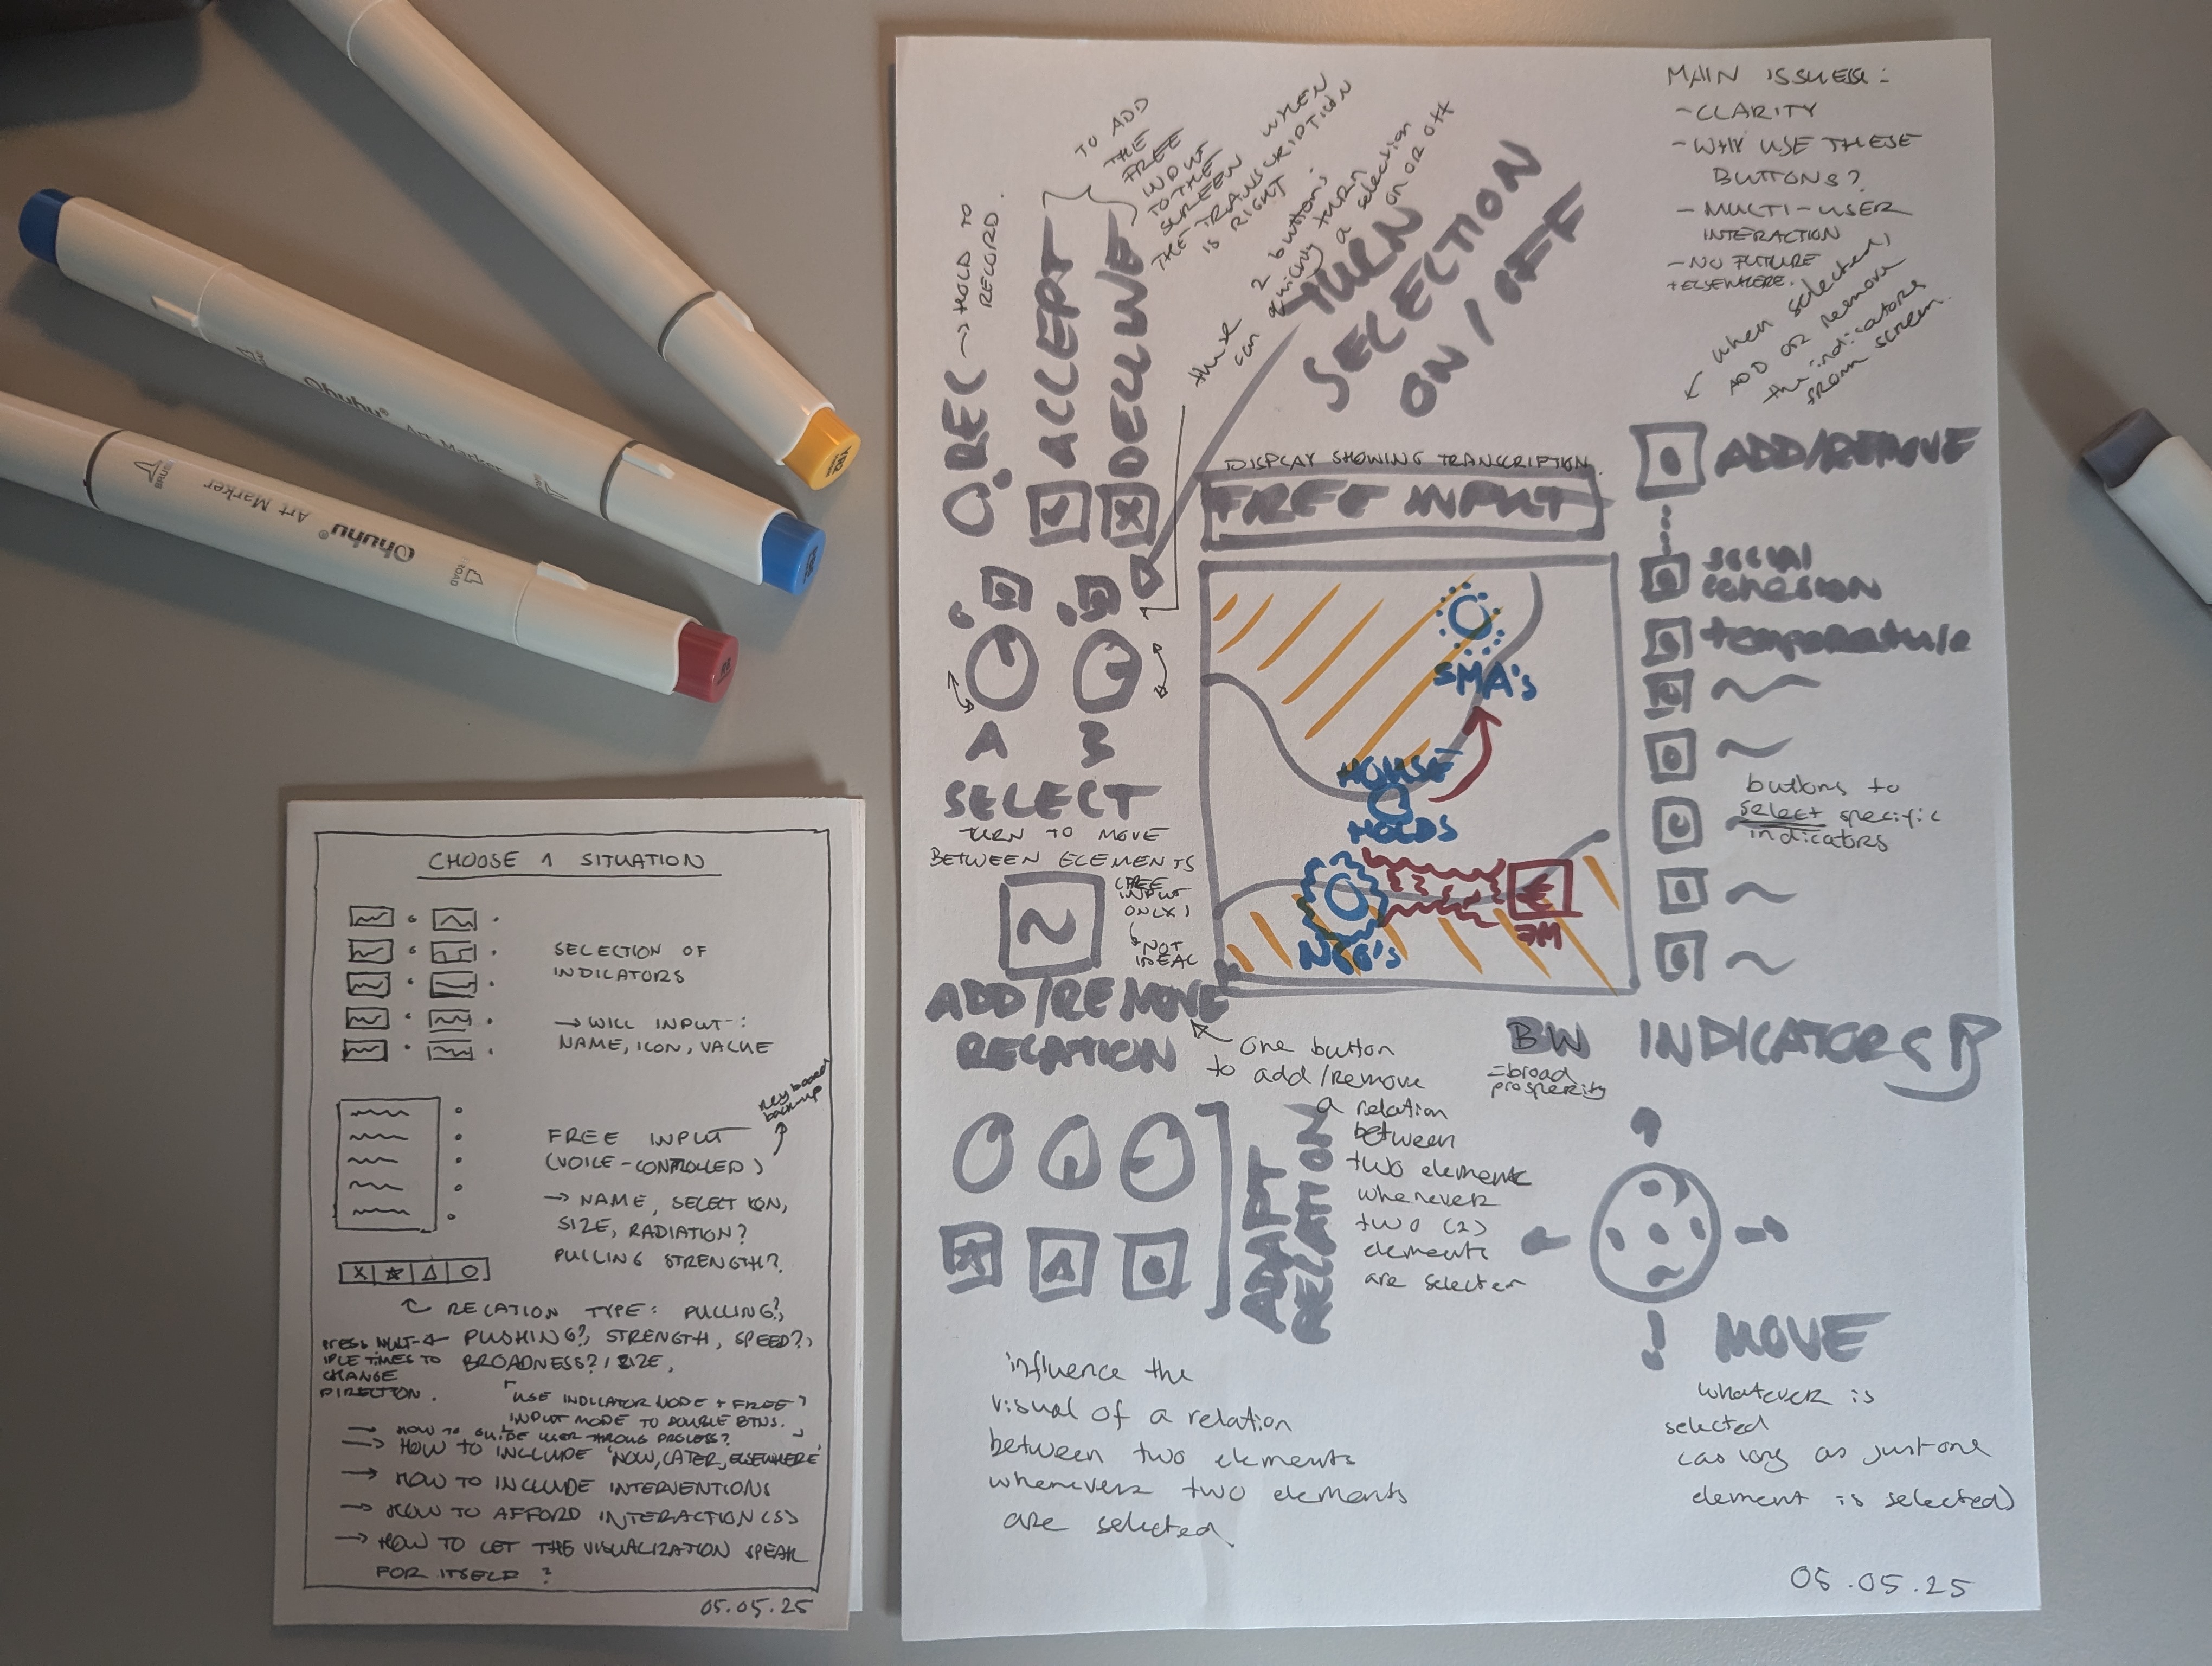 Ohuhu®
Art Marker
Ohuhu®
Art Marker
BRUSH
CHOOSE 1 SITUATION
SELECTION OF
INDICATORS
→ WILL INPUT :
NAME, ICON, VALUE
keyboard
backup
FREE INPUT
(VOICE-CONTROLLED)
→ NAME, SELECTION,
SIZE, RADIATION?
PULLING STRENGTH?
RELATION TYPE: PULLING?,
PUSHING?, STRENGTH, SPEED?,
BROADNESS? / SIZE,
PRESS MULT-
IPLE TIMES TO
CHANGE
DIRECTION.
"USE INDICATOR MODE + FREE
INPUT MODE TO DOUBLE BTNS."
→ HOW TO GUIDE USER THROUG PROCESS?
→ HOW TO INCLUDE 'NOW, LATER, ELSEWHERE'
→ HOW TO INCLUDE INTERVENTIONS
→ HOW TO AFFORD INTERACTION(S)
→ HOW TO LET THE VISUALIZATION SPEAK
FOR ITSELF ?
05.05.25
REC → HOLD TO
RECORD.
ACCEPT
DECLINE
TO ADD
THE
FREE
INPUT
TO THE
SCREEN WHEN
THE TRANSCRIPTION
IS RIGHT
these 2 buttons
can quickly turn
a selection
on or off
TURN
SELECTION
ON / OFF
MAIN ISSUES :
- CLARITY
- WHY USE THESE
BUTTONS?
- MULTI-USER
INTERACTION
- NO FUTURE
+ ELSEWHERE.
when selected,
ADD OR remove
the indicators
from screen.
DISPLAY SHOWING TRANSCRIPTION.
FREE INPUT
ADD/REMOVE
SOCIAL
COHESION
temperature
buttons to
select specific
indicators
A
B
SELECT
TURN TO MOVE
BETWEEN ELEMENTS
(FREE
INPUT
ONLY)
↳ NOT
IDEAL
SMA's
HOUSE
HOLDS
NGO's
€
ADD/REMOVE
RELATION
one button
to add/remove
a relation
between
two elements
whenever
two (2)
elements
are selected
BW
=broad
prosperity
INDICATORS
ADAPT
RELATION
influence the
visual of a relation
between two elements
whenever two elements
are selected
MOVE
whatever is
selected
(as long as just one
element is selected)
05.05.25